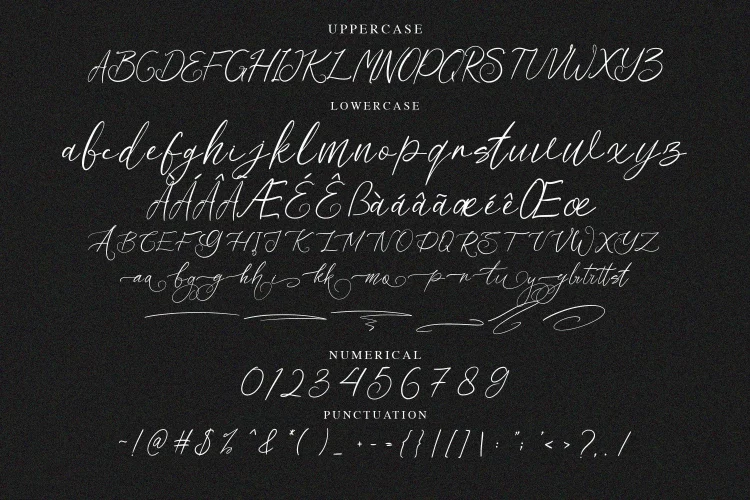 UPPERCASE
ABCDEFGHIJKLMNOPQRSTUVWXYZ
LOWERCASE
abcdefghijklmnopqrstuvwxyz
ÀÁÂÃÆÉÊßàáâãæéêŒœ
ABCEFGHIJKLMNOPQRSTUVWXYZ
NUMERICAL
0123456789
PUNCTUATION
~!@#$%^&*()_+-={}|[]\:";'<>?,./